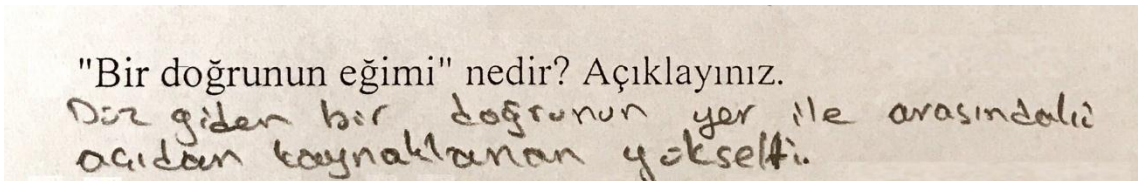 "Bir doğrunun eğimi" nedir? Açıklayınız.
Düz giden bir doğrunun yer ile arasındaki
açıdan kaynaklanan yükselti.